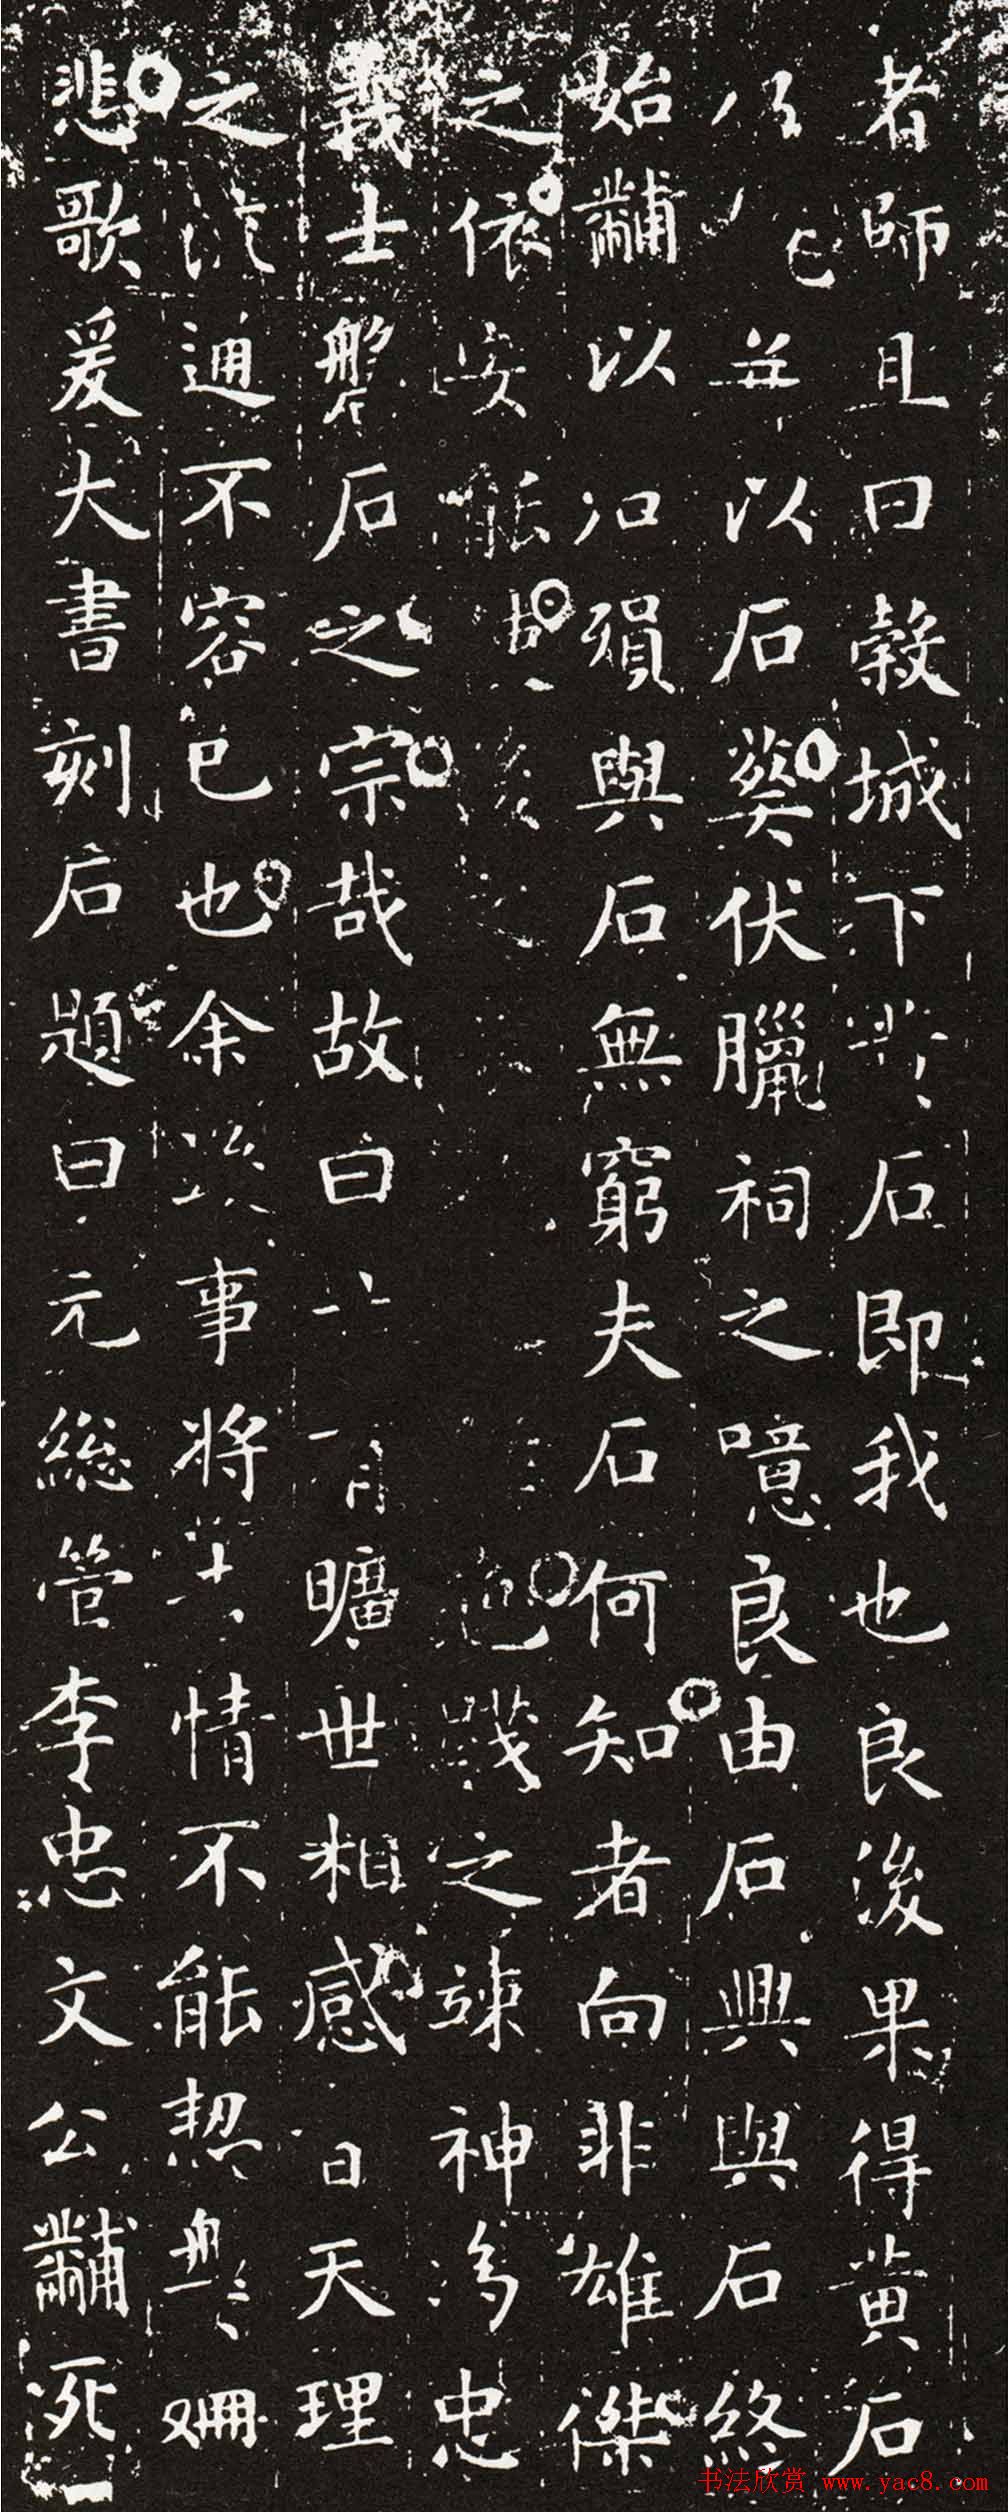 者師且曰穀城下黃石即我也良後果得黃石
以石葬伏臘祠之噫良由石興與石終
始黼以石殞與石無窮夫石何知者向非雄傑
之依安之竦神為忠
義士磐石之宗哉故曰曠世相感曰天理
之流通不容已也余以事將情不能恝與姍
悲歌爰大書刻石題曰元總管李忠文公黼死
书法欣赏 www.yac8.com